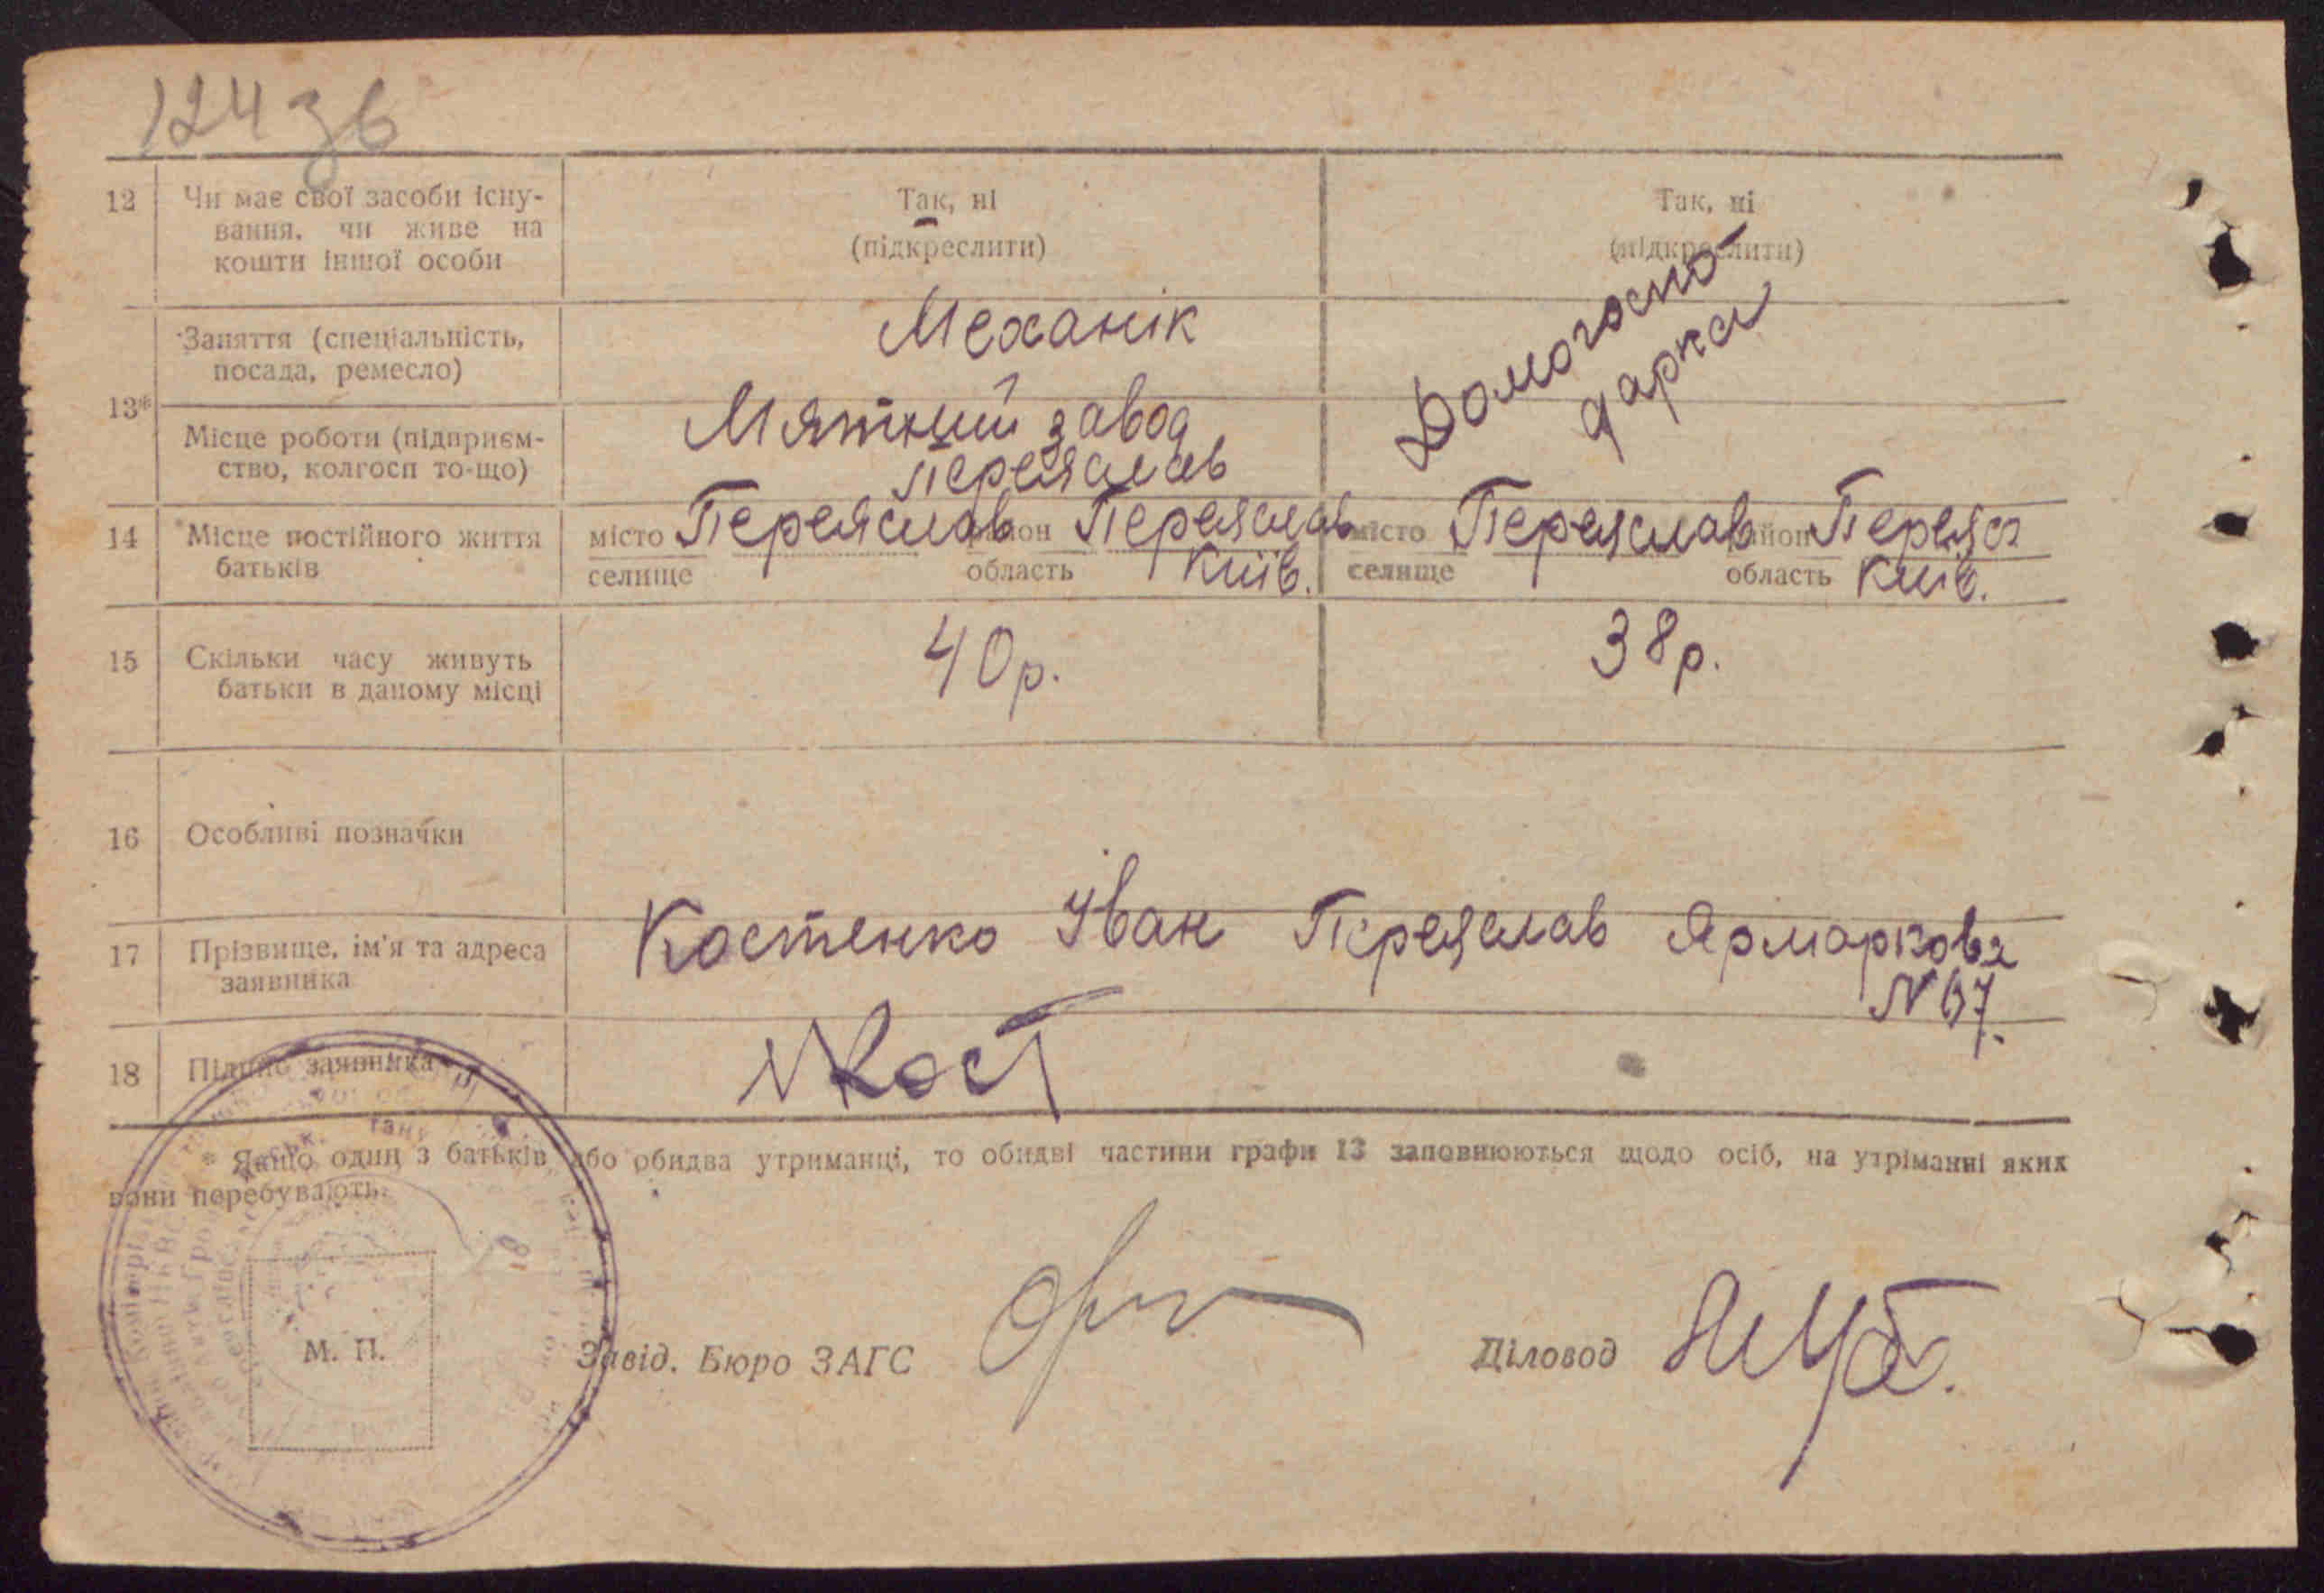 124 зв
12 Чи має свої засоби існу- Так, ні Так, ні
вання, чи живе на (підкреслити) (підкреслити)
кошти іншої особи
13* Заняття (спеціальність, Механік Домогоспо-
посада, ремесло) дарка
Місце роботи (підприєм- Мятний завод
ство, колгосп то-що) Переяслав
14 Місце постійного життя місто Переяслав район Переяслав місто Переяслав район Переяс
батьків селище область Київ. селище область Київ.
15 Скільки часу живуть 40 р. 38 р.
батьки в даному місці
16 Особливі позначки
17 Прізвище, ім'я та адреса Костенко Іван Переяслав Ярмаркова
заявника N 67.
18 Підпис заявника Кост
* Якщо один з батьків або обидва утриманці, то обидві частини графи 13 заповнюються щодо осіб, на утріманні яких
вони перебувають.
М. П. Завід. Бюро ЗАГС Діловод